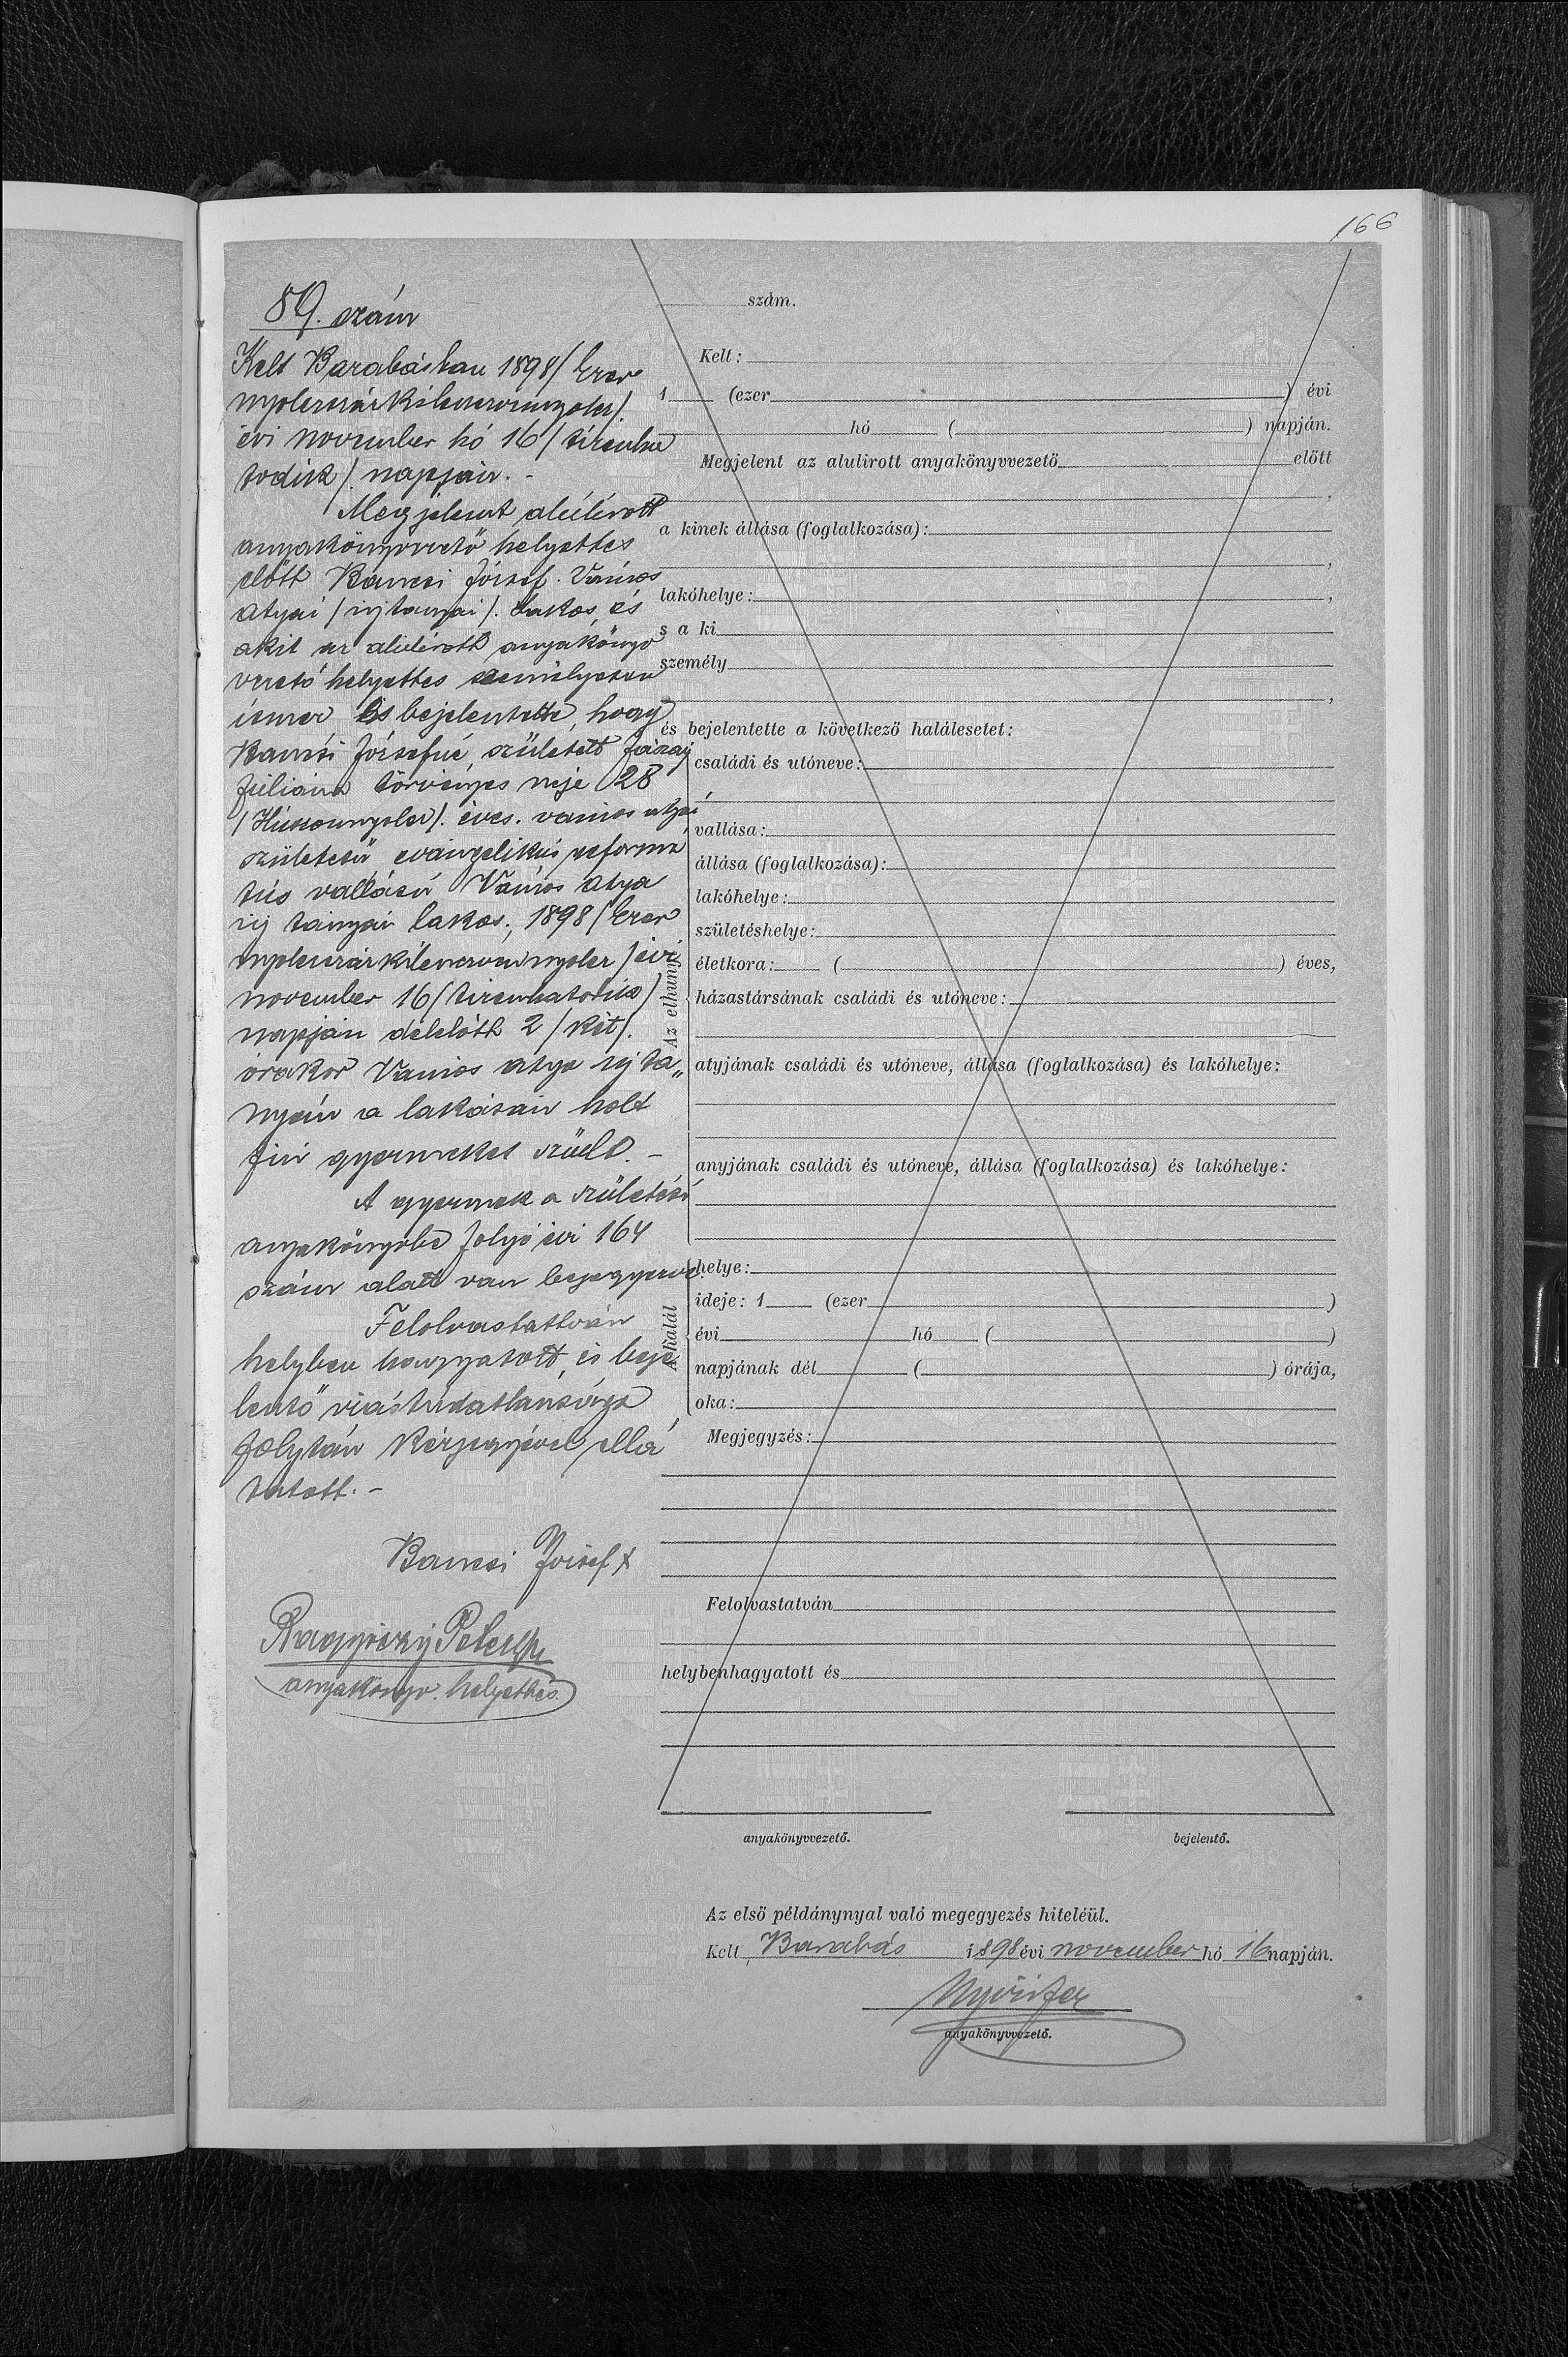 166
89. szám
Kelt Barabásban 1898 / Ezer
nyolczszázkilenczvennyolcz /.
évi november hó 16 / tizenha
todik /. napján. -
Megjelent alúlírott
anyakönyvvezető helyettes
előtt Bancsi József. Vámos
atyai / ujtanyai /. lakos, és
akit az alúlírott anyakönyv
vezető helyettes személyesen
ismer és bejelentette, hogy
Bancsi Józsefné, született
Juliánna törvényes neje 28
/ Huszonnyolcz /. éves. vámos atyai
születésű evángelikús reformá
tús vallású Vámos atya
új tanyai lakos, 1898 / Ezer
nyolczszázkilenczvennyolcz / évi
november 16 / tizenhatodik /
napján délelőtt 2 / két /.
órakor Vámos atya új ta„
nyán a lakásán holt
fiú gyermeket szült. -
A gyermek a születési
anyakönyvbe folyó évi 164
szám alatt van bejegyezve.
Felolvastatván
helyben hagyatott, és beje
lentő irástudatlansága
folytán kézjegyével ellá
tatott. -
Bancsi József x
Péter
anyakönyv. helyettes.
szám.
Kelt:
1 (ezer ) évi
hó ( ) napján.
Megjelent az alulirott anyakönyvvezető előtt
,
a kinek állása (foglalkozása):
,
lakóhelye: ,
s a ki
személy
,
és bejelentette a következő halálesetet:
Az elhunyt
családi és utóneve:
vallása:
állása (foglalkozása):
lakóhelye:
születéshelye:
életkora: ( ) éves,
házastársának családi és utóneve:
atyjának családi és utóneve, állása (foglalkozása) és lakóhelye:
anyjának családi és utóneve, állása (foglalkozása) és lakóhelye:
A halál
helye:
ideje: 1 (ezer )
évi hó ( )
napjának dél ( ) órája,
oka:
Megjegyzés:
Felolvastatván
helybenhagyatott és
anyakönyvvezető. bejelentő.
Az első példánynyal való megegyezés hiteléül.
Kelt, Barabás 1898 évi november hó 16 napján.
anyakönyvvezető.